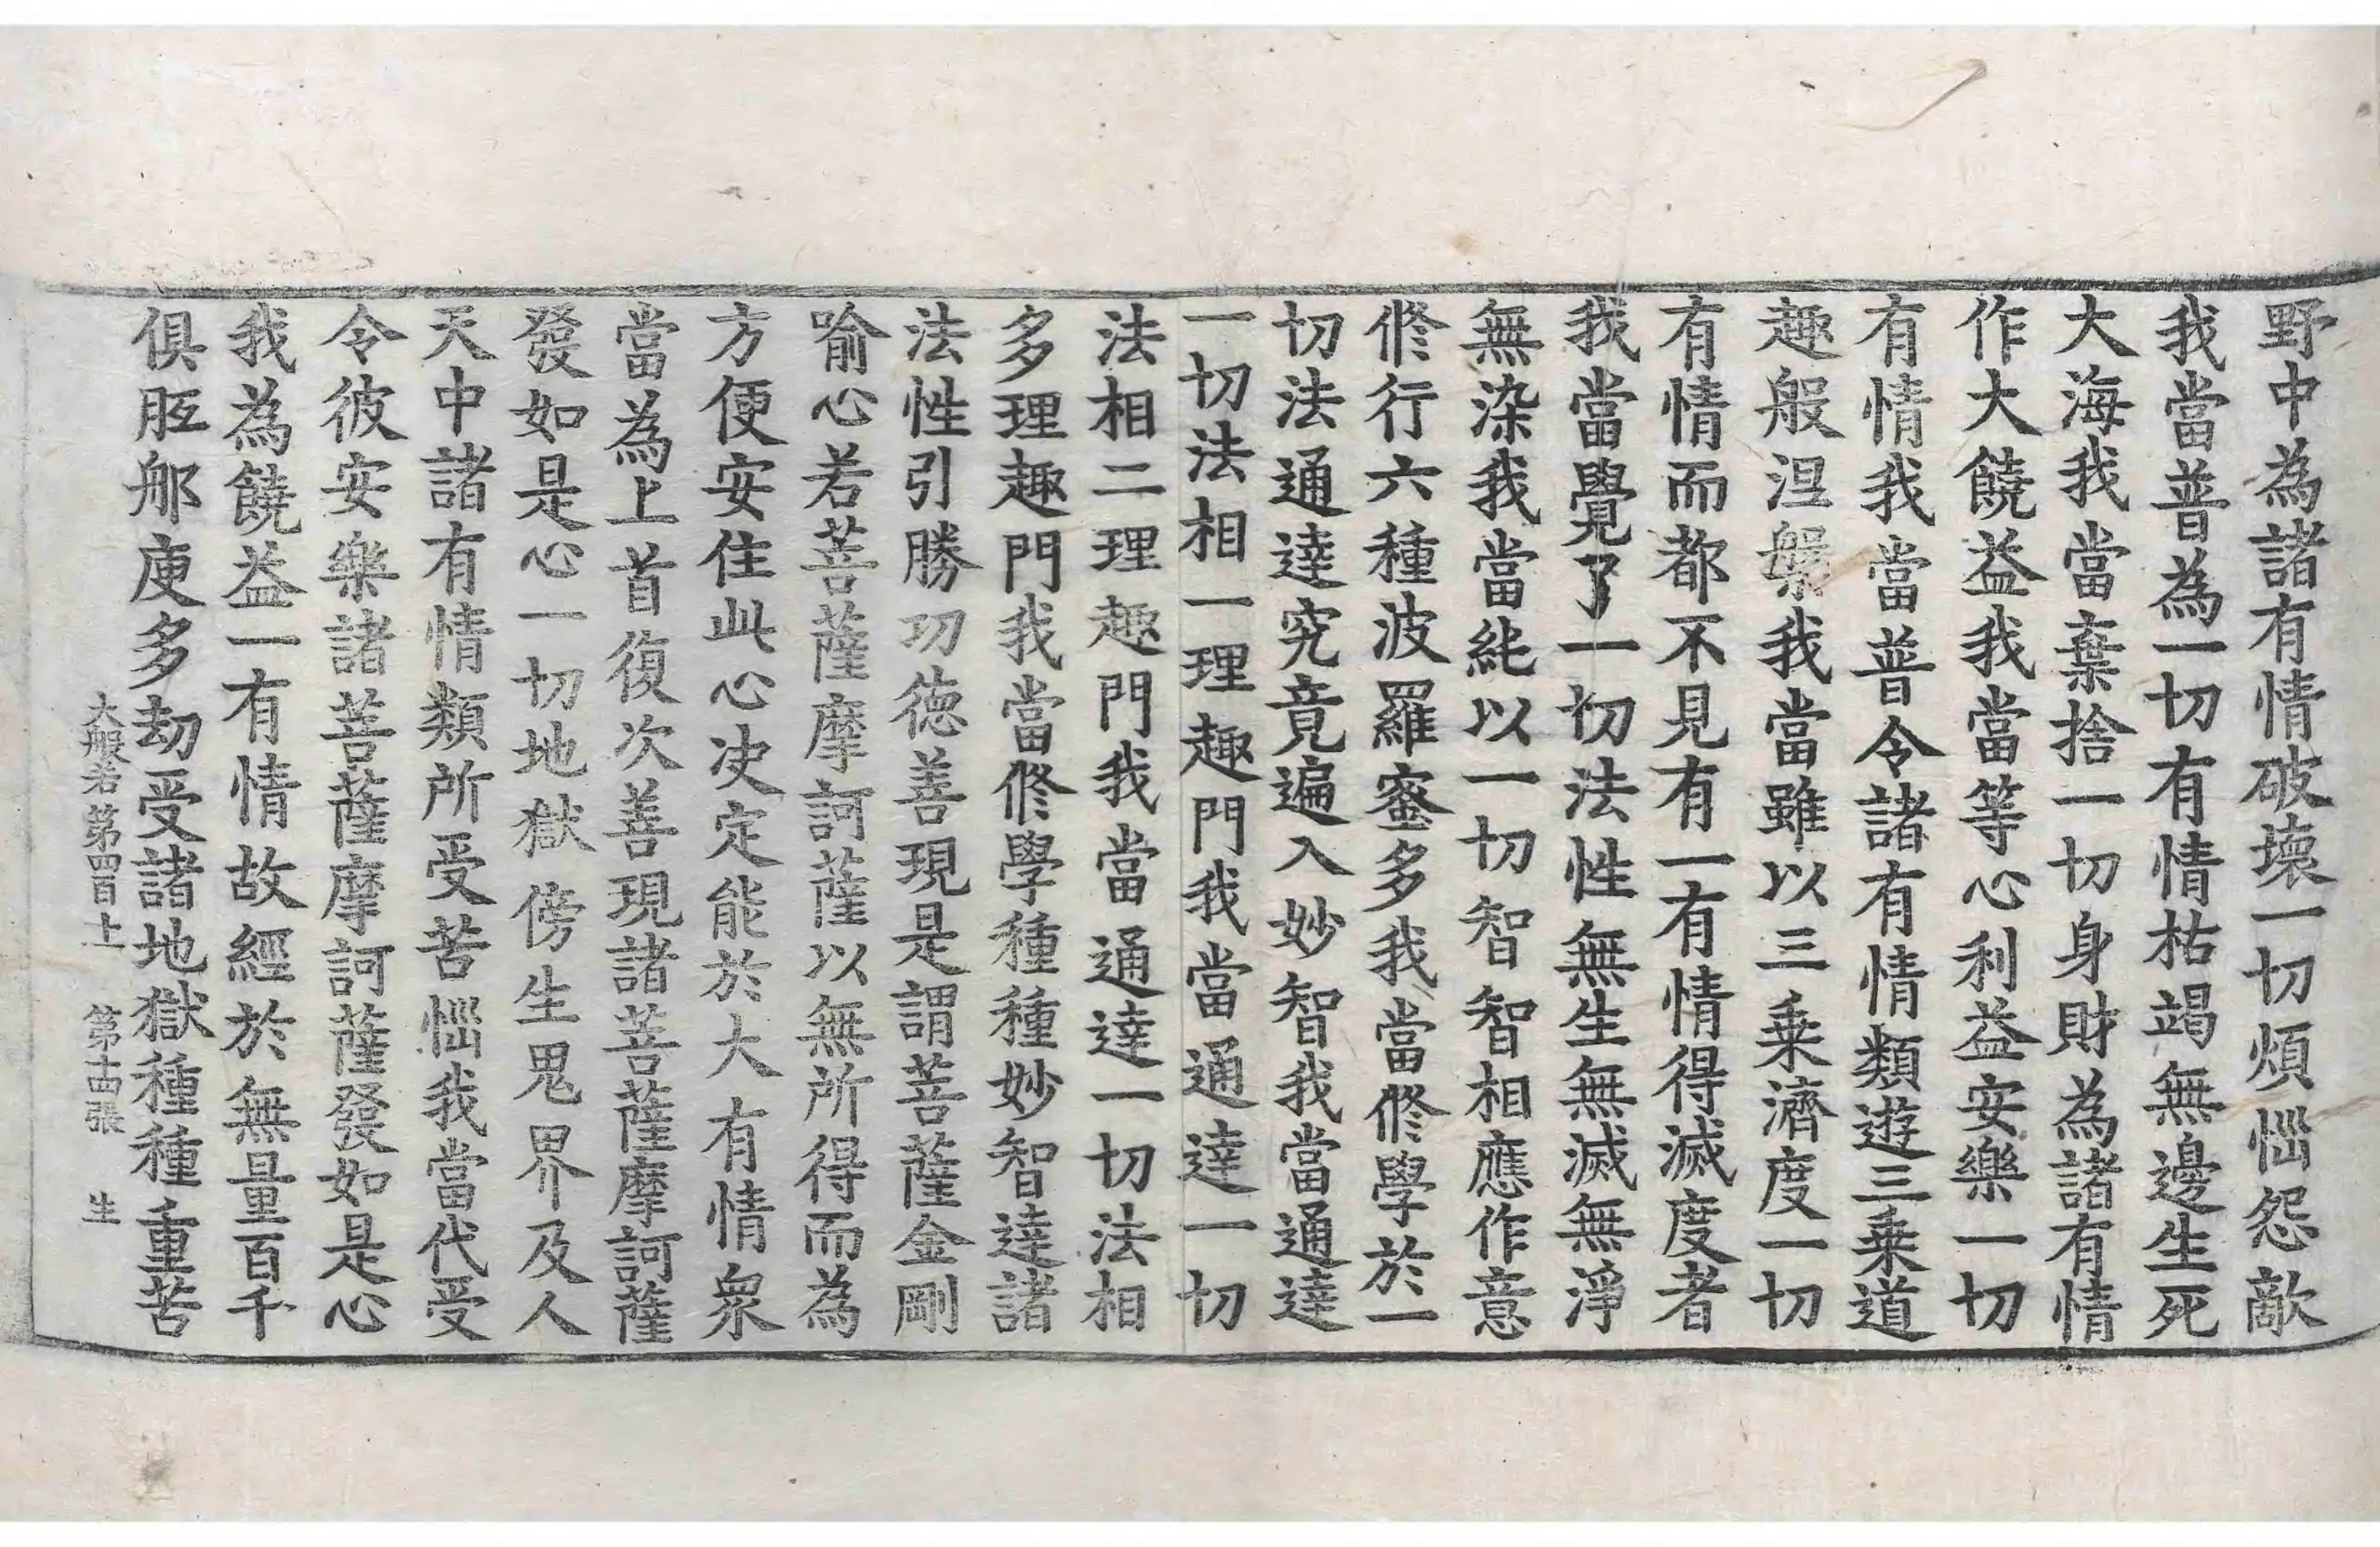 野中為諸有情破壞一切煩惱怨敵
我當普為一切有情枯竭無邊生死
大海我當棄捨一切身財為諸有情
作大饒益我當等心利益安樂一切
有情我當普令諸有情類遊三乗道
趣般涅槃我當雖以三乗濟度一切
有情而都不見有一有情得滅度者
我當覺了一切法性無生無滅無淨
無染我當純以一切智智相應作意
修行六種波羅蜜多我當修學於一
切法通達究竟遍入妙智我當通達
一切法相一理趣門我當通達一切
法相二理趣門我當通達一切法相
多理趣門我當修學種種妙智達諸
法性引勝功德善現是謂菩薩金剛
喻心若菩薩摩訶薩以無所得而為
方便安住此心决定能於大有情衆
當為上首復次善現諸菩薩摩訶薩
發如是心一切地獄傍生鬼界及人
天中諸有情類所受苦惱我當代受
令彼安樂諸菩薩摩訶薩發如是心
我為饒益一有情故經於無量百千
俱胝那庾多劫受諸地獄種種重苦
大般若第四百上 第十四張 生